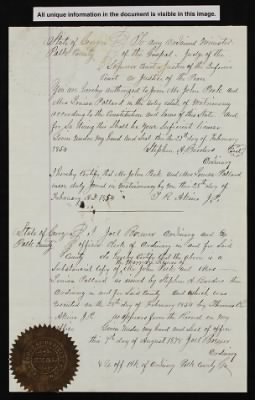 All unique information in the document is visible in this image.
State of Georgia } To any ordained Minister
Polk County } of the Gospel - Judge of the
Superior Court - Justice of the Inferior
Court or Justice of the Peace
You are hereby authorized to join Mr John Peek and
Mrs Louisa Pollard in the holy state of Matrimony
according to the Constitution and laws of this State and
for so doing this shall be your Sufficient License
Given under my hand and seal this day of February
1854
Stephen A Borders
Ordinary
I hereby Certify that Mr John Peek and Mrs Louisa Pollard
were duly joined in matrimony by me this 28th day of
February A.D. 1854
Atkins J.P.
State of Georgia } I Joel Brewer Ordinary and
Polk County } officio Clerk of Ordinary in and for Said
County do hereby Certify that the above is a
Substantial copy of Mr John Peek and Mrs
Louisa Pollard as issued by Stephen A Borders then
Ordinary in and for Said County and which was
executed on the 28th day of February 1854 by Thomas
Atkins J.P. as appears from the Record in my
office Given under my hand and Seal of office
this 7th day of August 1878 Joel Brewer
Ordinary
& Ex off Clk of Ordinary Polk County Ga